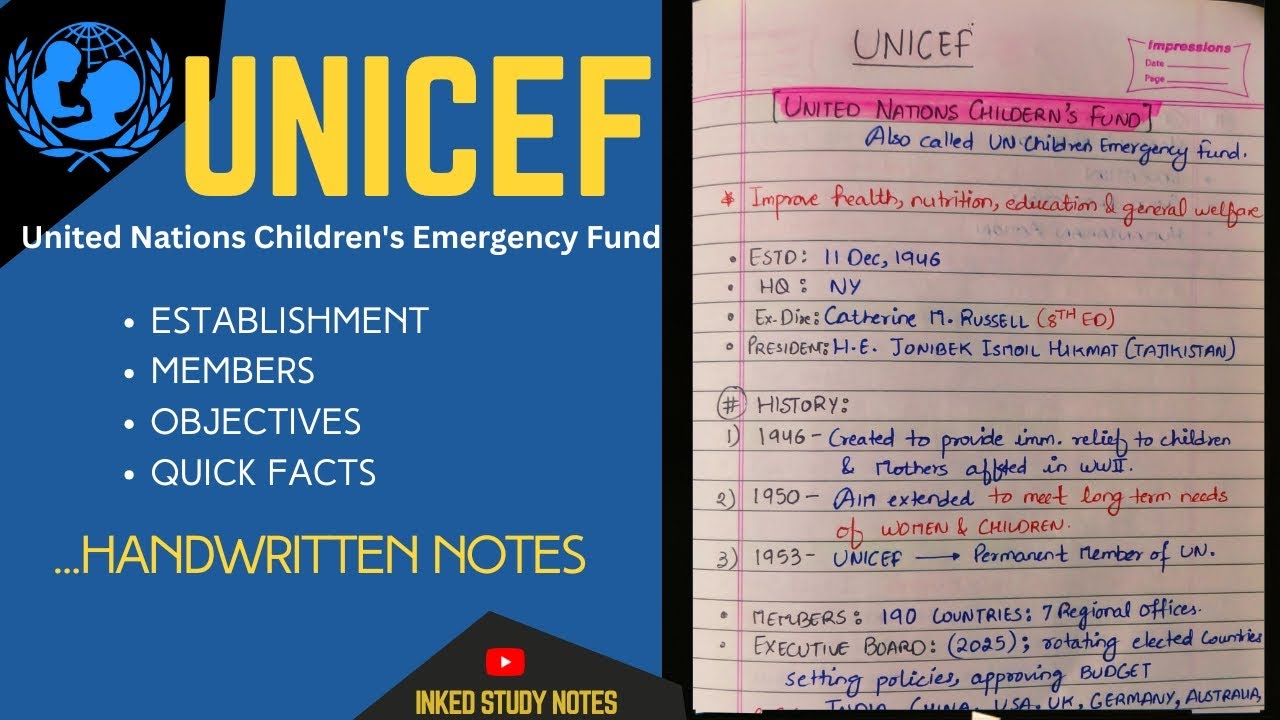 UNICEF
United Nations Children's Emergency Fund
• ESTABLISHMENT
• MEMBERS
• OBJECTIVES
• QUICK FACTS
...HANDWRITTEN NOTES
INKED STUDY NOTES
UNICEF
Impressions
Date
Page
[UNITED NATIONS CHILDERN'S FUND]
Also called UN Children Emergency fund.
* Improve health, nutrition, education & general welfare
• ESTD: 11 Dec, 1946
• HQ: NY
• Ex-Dire: Catherine M. RUSSELL (8TH ED)
• PRESIDENT: H.E. JONIBEK ISMOIL HIKMAT (TAJIKISTAN)
# HISTORY:
1) 1946 - Created to provide imm. relief to children
& Mothers affted in WWII.
2) 1950 - Aim extended to meet long term needs
of WOMEN & CHILDREN.
3) 1953 - UNICEF → Permanent Member of UN.
• MEMBERS: 190 COUNTRIES: 7 Regional Offices.
• EXECUTIVE BOARD: (2025); rotating elected Countries
setting policies, approving BUDGET
INDIA, CHINA, USA, UK, GERMANY, AUSTRALIA,